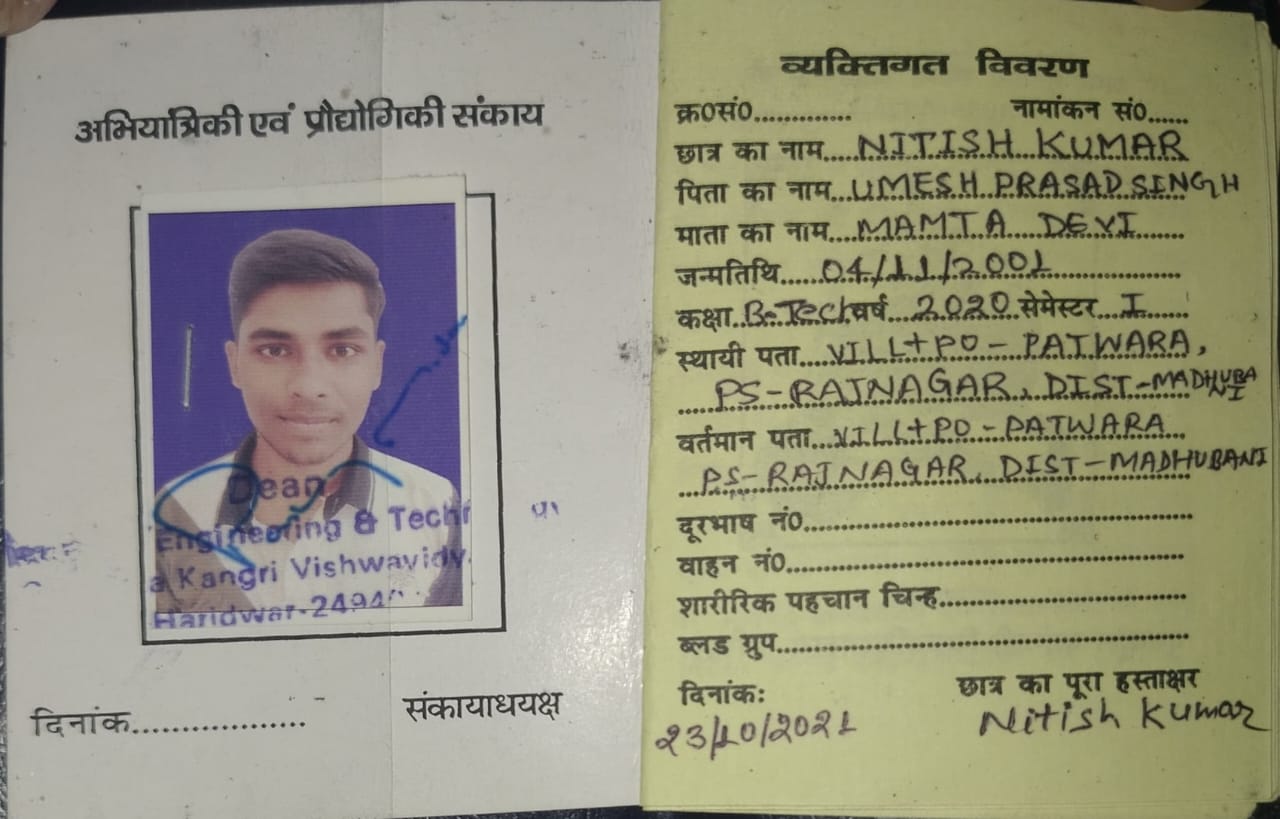 अभियांत्रिकी एवं प्रौद्योगिकी संकाय
Dean
Engineering & Techn
a Kangri Vishwavidy
Haridwar-2494
दिनांक..................
संकायाधयक्ष
व्यक्तिगत विवरण
क्र०सं०............. नामांकन सं०......
छात्र का नाम....NITISH KUMAR
पिता का नाम..UMESH PRASAD SINGH
माता का नाम...MAMTA DEVI......
जन्मतिथि.....04/11/2001..................
कक्षा..B.Tech वर्ष...2020 सेमेस्टर...I......
स्थायी पता....VILL+PO - PATWARA,
PS-RAJNAGAR, DIST-MADHUBANI
वर्तमान पता...VILL+PO-PATWARA...
PS-RAJNAGAR, DIST-MADHUBANI
दूरभाष नं०......................................................
वाहन नं०........................................................
शारीरिक पहचान चिन्ह..................................
ब्लड ग्रुप..........................................................
दिनांक:
23/10/2021
छात्र का पूरा हस्ताक्षर
Nitish Kumar